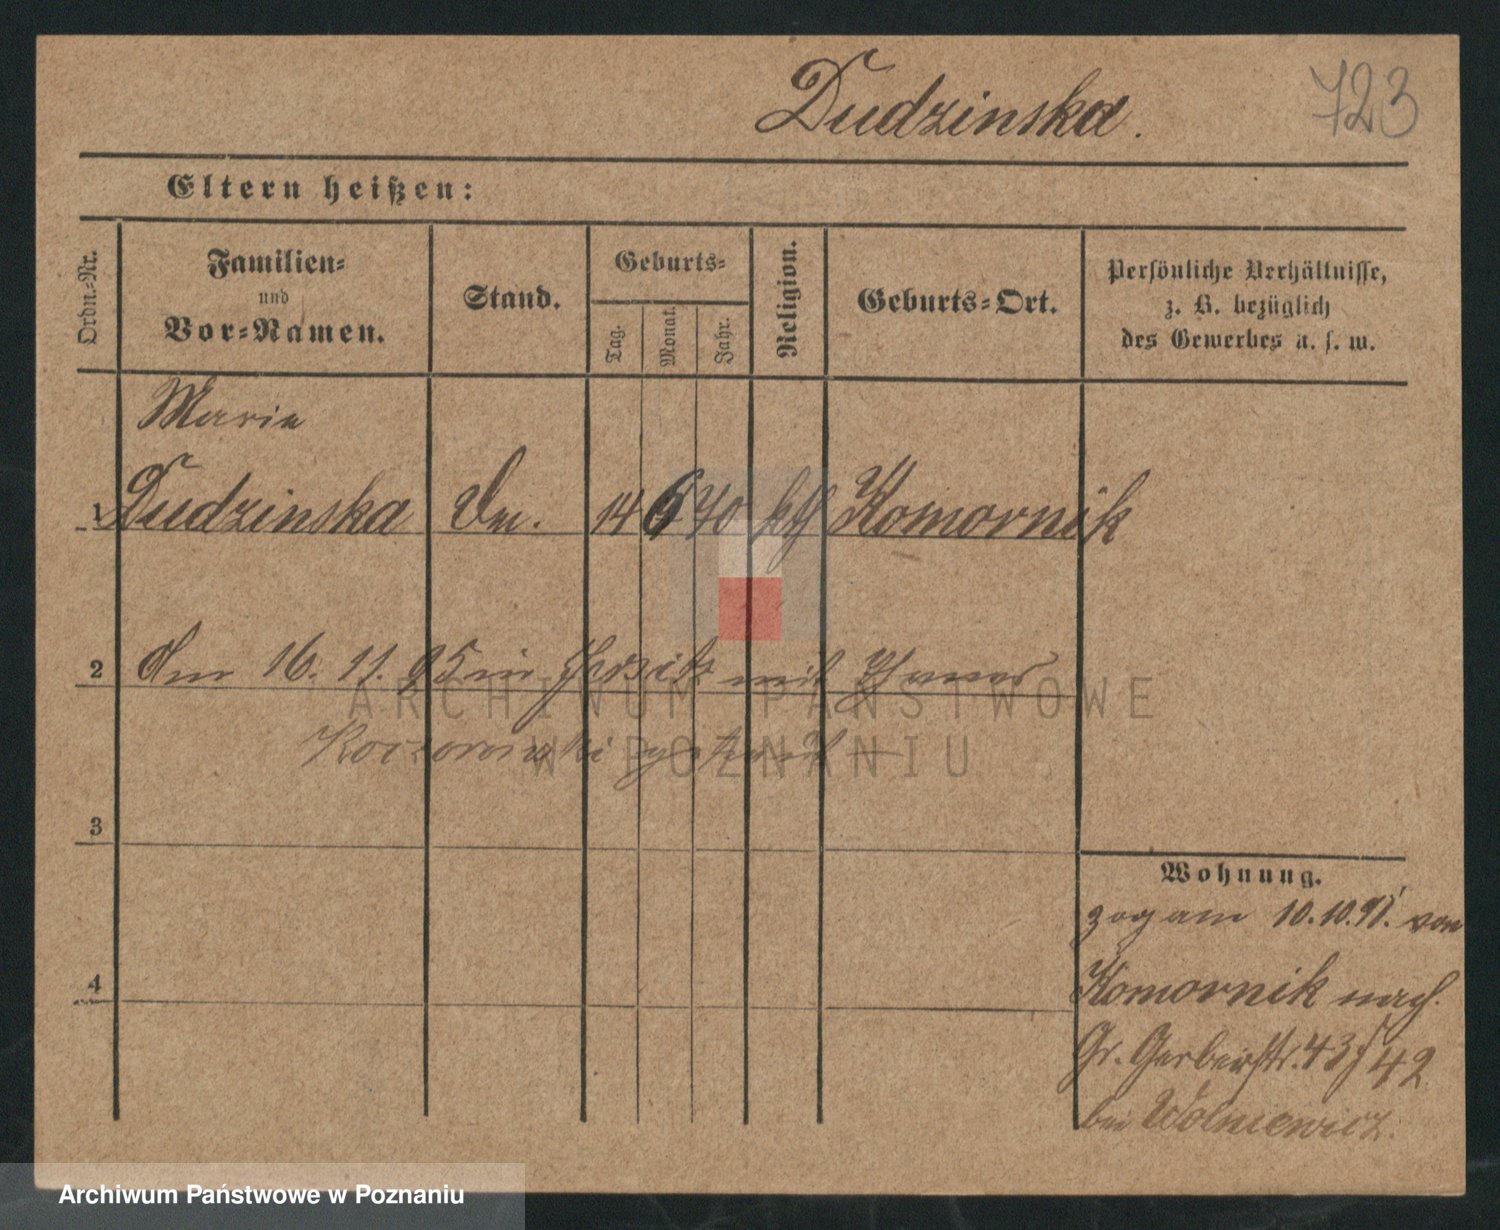 Dudzinska.
723
Eltern heißen:
Ordn.-Nr.
Familien-
und
Vor-Namen.
Stand.
Geburts-
Tag.
Monat.
Jahr.
Religion.
Geburts-Ort.
Persönliche Verhältnisse,
z. B. bezüglich
des Gewerbes u. s. w.
Marie
1 Dudzinska 14 6 70 kth Komornik
2 Am 16. 11. 95 in Jersitz mit Thomas
ARCHIWUM PAŃSTWOWE
W POZNANIU
3
Wohnung.
zog am 10.10.91. von
4
Komornik nach
Gr. Gerberstr. 43/42
bei Wolniewicz.
Archiwum Państwowe w Poznaniu